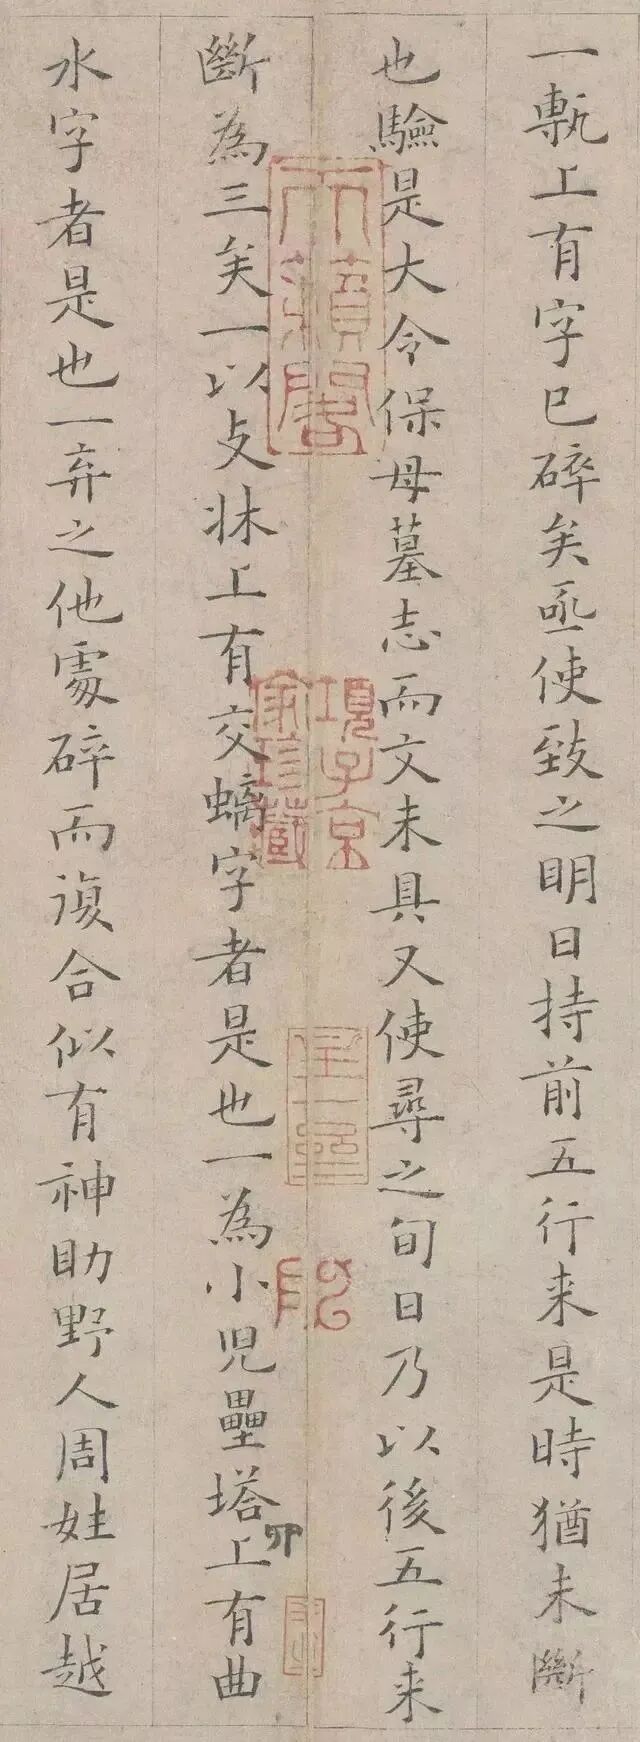 一塼上有字已碎矣亟使致之明日持前五行来是時猶未斷
也驗是大令保母墓志而文未具又使尋之旬日乃以後五行来
斷為三矣一以支牀上有交螭字者是也一為小児壘塔上有曲
水字者是也一弃之他處碎而復合似有神助野人周姓居越
天籟閣
項子京
家珍藏